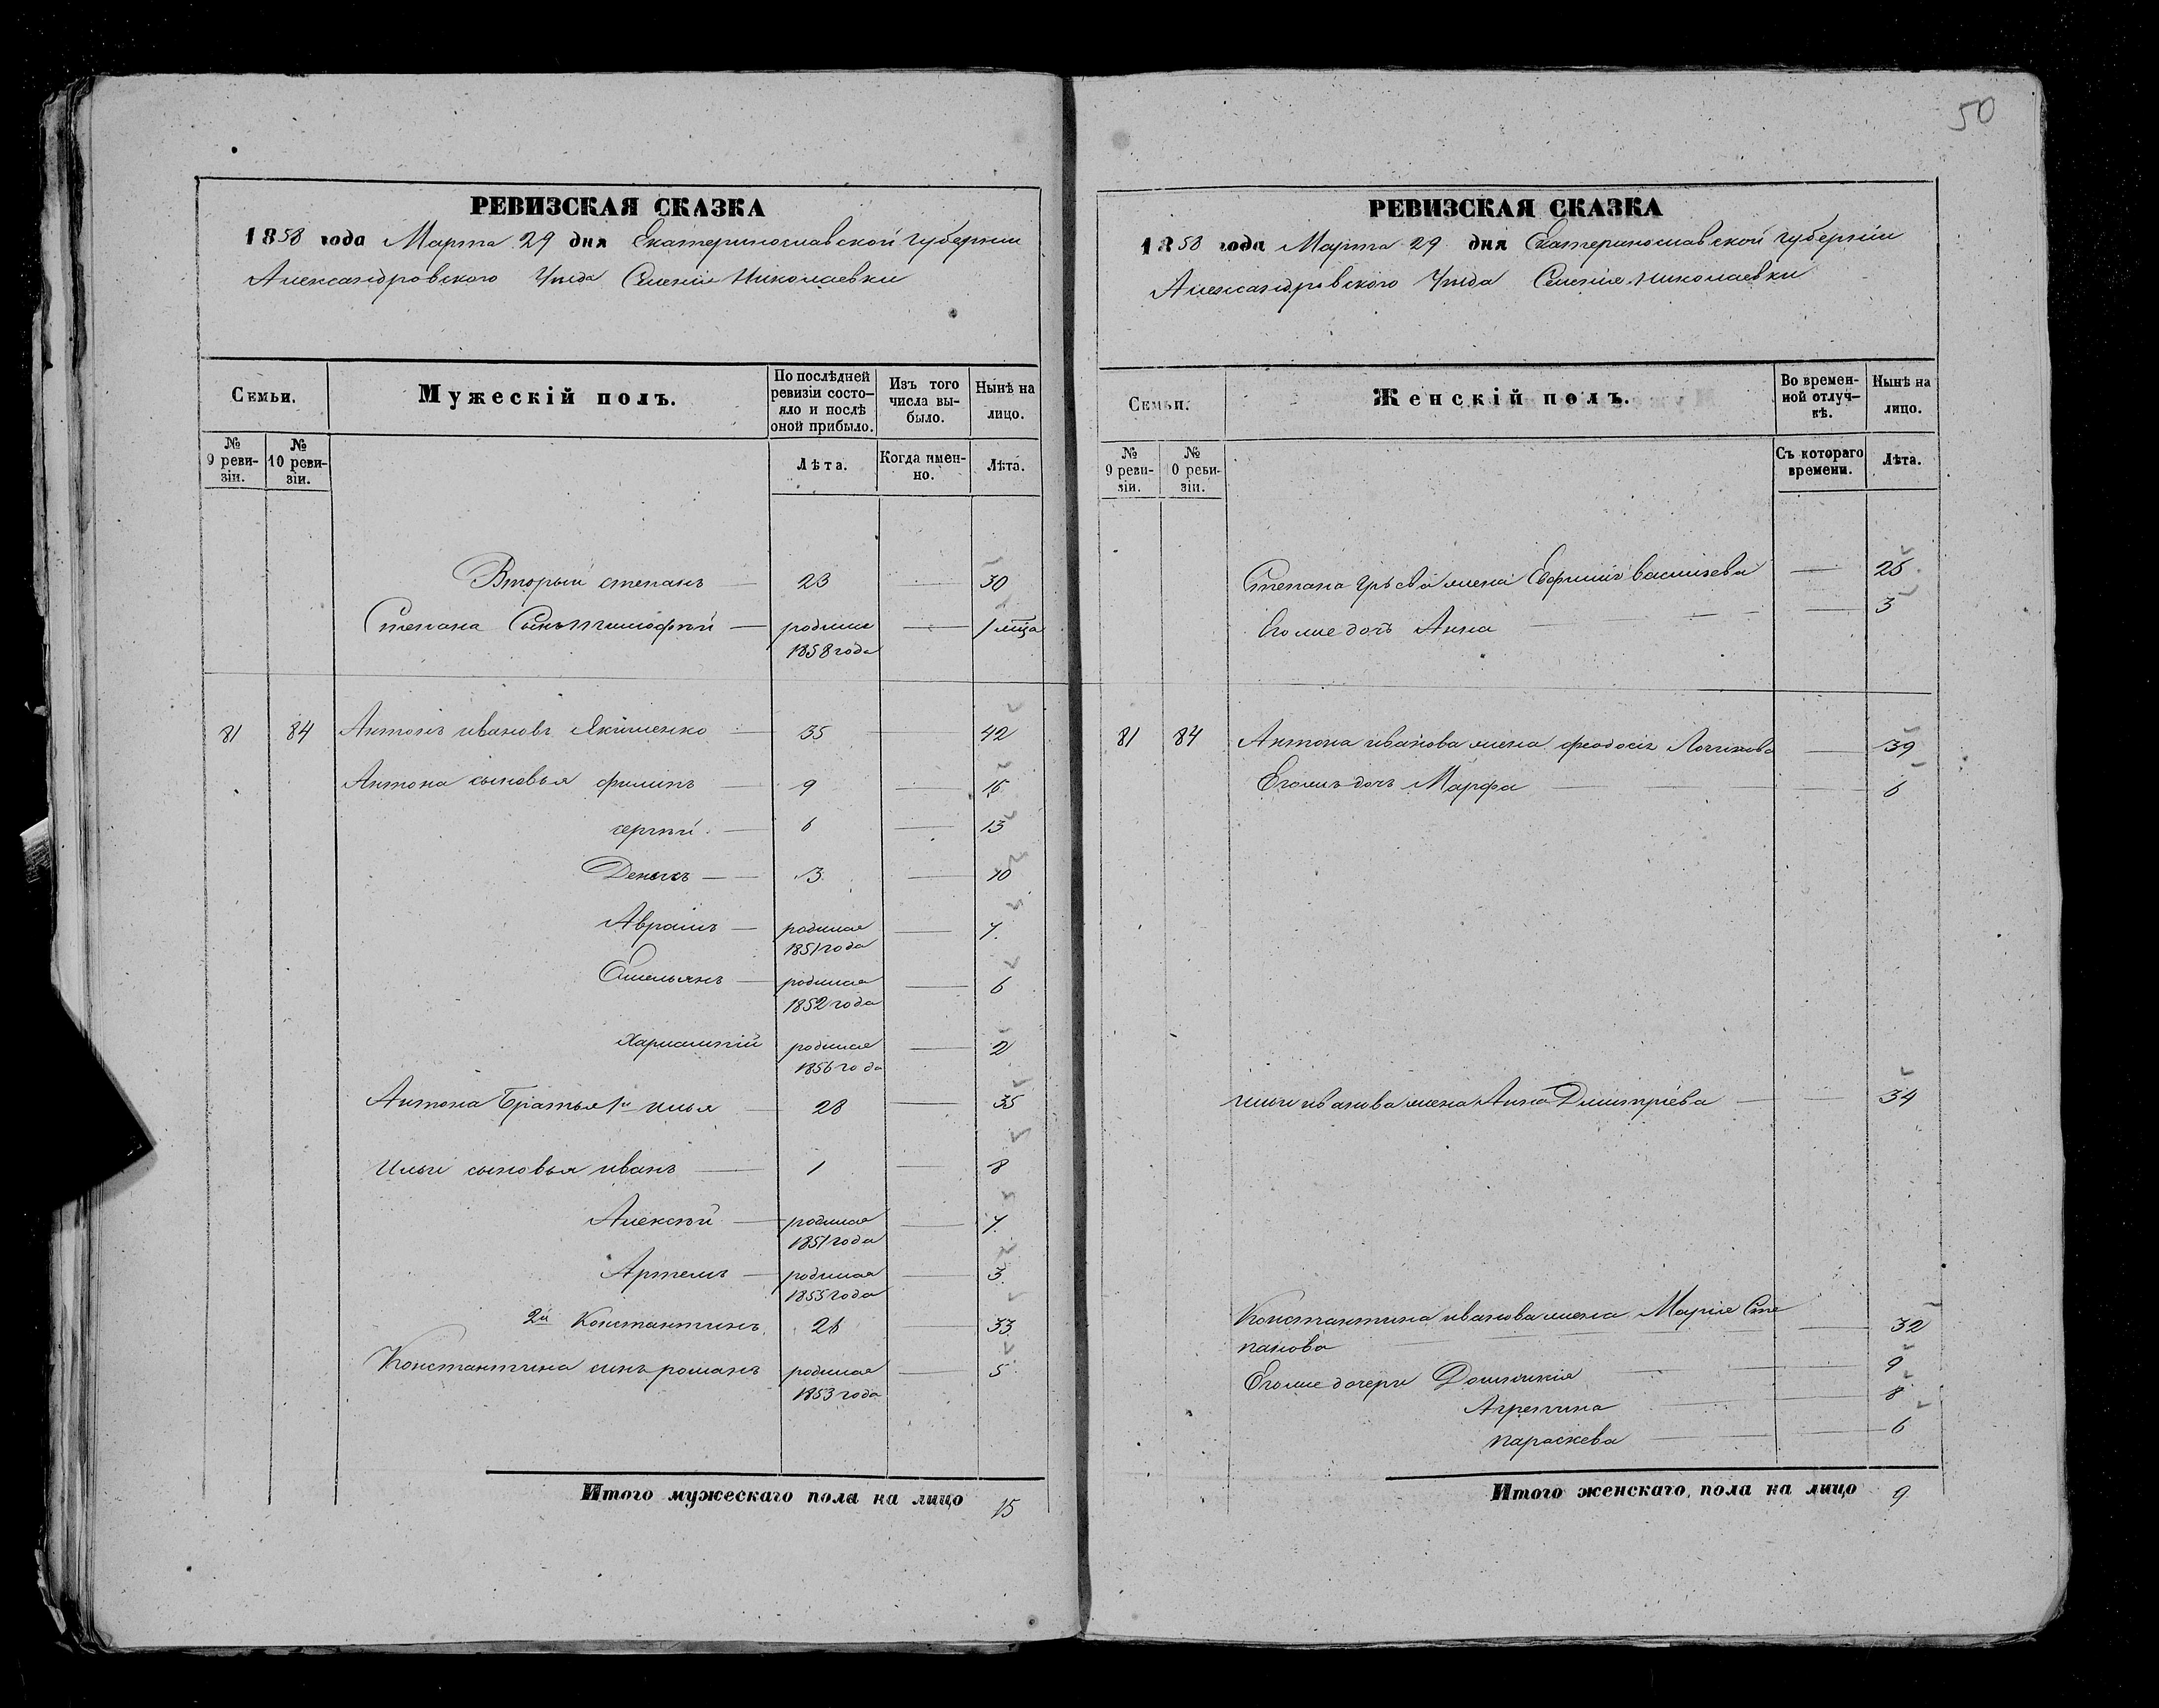 50
РЕВИЗСКАЯ СКАЗКА
1858 года Марта 29 дня Екатеринославской губернiи
Александровского Уѣзда Селенiя Николаевки
Семьи.
Мужескій полъ.
По послѣдней ревизіи состояло и послѣ оной прибыло.
Изъ того числа выбыло.
Нынѣ на лицо.
№ 9 ревизіи.
№ 10 ревизіи.
Лѣта.
Когда именно.
Лѣта.
Вторый степанъ — 23 — 30
Степана Сынъ тимофѣй — родился 1858 года — 1 мца
81 84 Антонъ ивановъ Якименко — 35 — 42
Антона сыновья филипъ — 9 — 16
сергѣй — 6 — 13
Денисъ — 3 — 10
Аврамъ — родился 1851 года — 7
Емельянъ — родился 1852 года — 6
Харлампій родился 1856 года — 2
Антона Братья 1й илья — 28 — 35
Ильи сыновья иванъ — 1 — 8
Алексѣй — родился 1851 года — 7
Артемъ — родился 1855 года — 3
2й Константинъ 26 — 33
Константина сынъ романъ родился 1853 года — 5
Итого мужескаго пола на лицо 15
РЕВИЗСКАЯ СКАЗКА
1858 года Марта 29 дня Екатеринославской губернiи
Александровского Уѣзда Селенiя николаевки
Семьи.
Женскій полъ.
Во временной отлучкѣ.
Нынѣ на лицо.
№ 9 ревизіи.
№ 0 ревизіи.
Съ котораго времени.
Лѣта.
Степана жена Евфимiя васильева — 25
Его же дочь Анна — 3
81 84 Антона иванова жена феодосiя — 39
Его жъ дочь Марфа — 6
ильи иванова жена Анна Дмитрiева — 34
Константина иванова жена Марiя Сте
панова — 32
Его же дочери Домникiя — 9
Агрепина — 8
параскева — 6
Итого женскаго пола на лицо 9